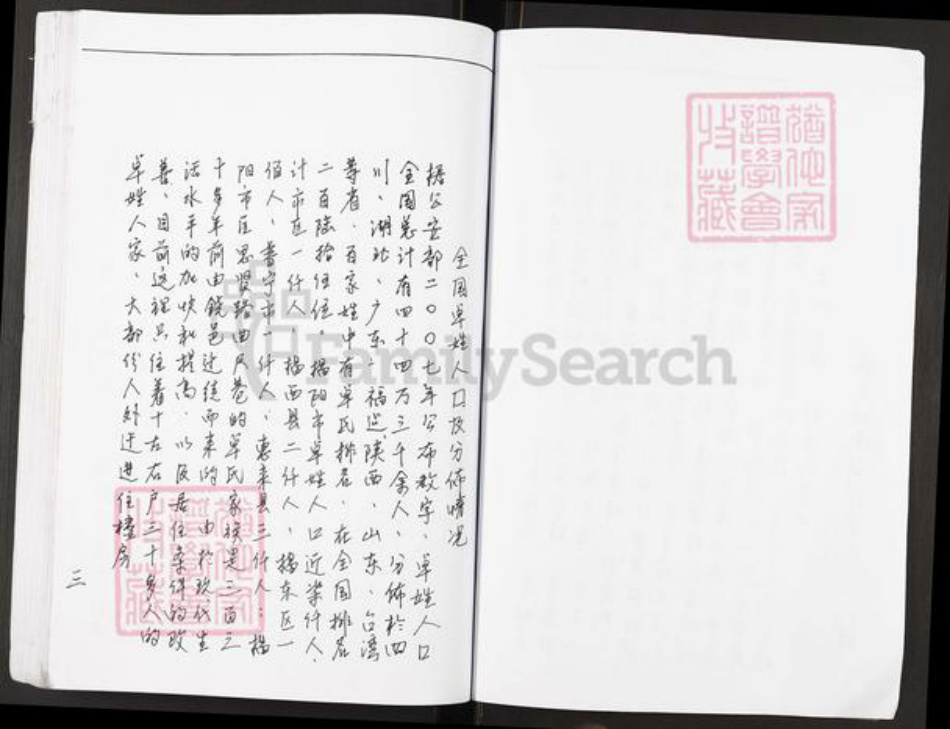 全国卓姓人口及分佈情况
据公安部二〇〇七年公布数字、卓姓人口
全国总计有四十四万三千余人、分佈於四
川、湖北、广东、福建、陕西、山东、台湾
等省、百家姓中有卓氏排名、在全国排名
二百陆拾伍位、揭阳市卓姓人口近柒仟人、
计市区一仟人、揭西县二仟人、揭东区一
佰人、普宁市一仟人、惠来县三仟人；揭
阳市区思贤路曲尺巷的卓氏家族是三百三
十多年前由饶邑迁徙而来的、由於现代生
活水平的加快和提高、以及居住条件的改
善、目前这裡只住着十左右户三十多人的
卓姓人家、大部份人外迁进住楼房
三
猶他家
譜學會
收藏
猶他家
譜學會
收藏
FamilySearch